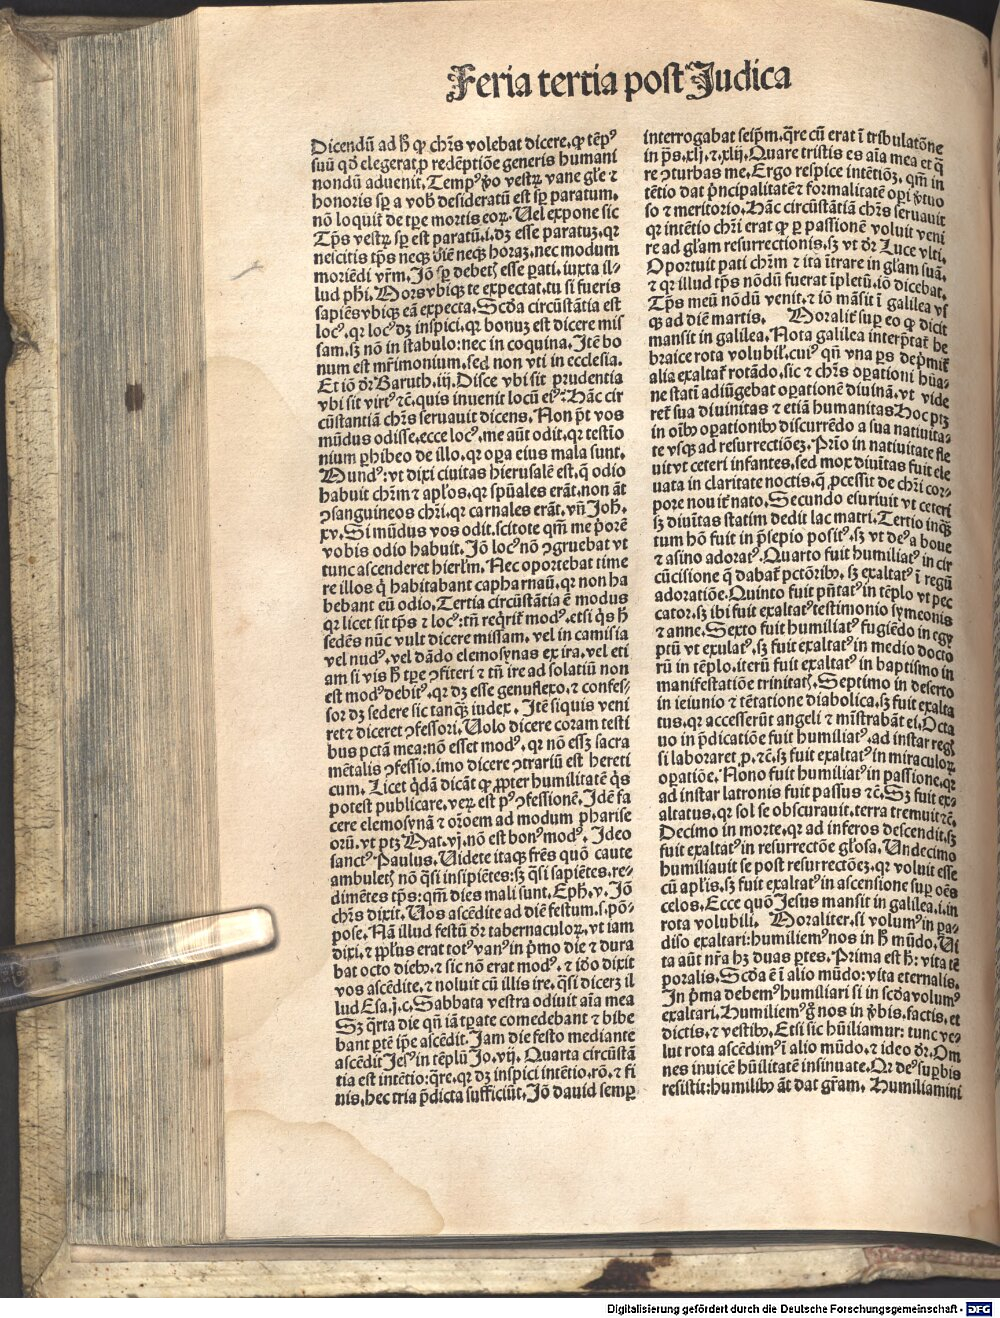 Feria tertia post Judica
Dicendū ad hͦ ꝙ chr̄s volebat dicere, ꝙ tēpꝰ
suū qd̄ elegerat ꝓ redēptiōe generis humani
nondū aduenit. Tempꝰ ꝟo vestꝝ vane gl̄e ⁊
honoris sꝑ a vob̄ desideratū est sꝑ paratum.
nō loquit̄ de tꝑe mortis eoꝝ. Uel expone sic
Tp̄s vestꝝ sꝑ est paratū.i.dꝫ esse paratuꝫ, qr
nescitis tp̄s neqꝫ diē neqꝫ horaꝫ, nec modum
moriēdi vr̄m. Jō sꝑ debetꝭ esse ꝑati, iuxta il⸗
lud ph̄i. Mors vbiqꝫ te expectat, tu si fueris
sapiēs vbiqꝫ eā expecta. Scd̄a circūstātia est
locꝰ, qr locꝰ dꝫ inspici, qr bonuꝫ est dicere mis
sam, sꝫ nō in stabulo: nec in coquina. Itē bo
num est mr̄imonium, sed non vti in ecclesia.
Et iō dr̄ Baruth.iij. Disce vbi sit prudentia
vbi sit virtꝰ ⁊c̄. quis inuenit locū eiꝰ? Hāc cir
cūstantiā chr̄s seruauit dicens. Non pt̄ vos
mūdus odisse, ecce locꝰ, me aūt odit, qr testīo
nium ꝑhibeo de illo, qr oꝑa eius mala sunt.
Mundꝰ: vt dixi ciuitas hierusalē est, q̄ odio
habuit chr̄m ⁊ apl̄os, qr spūales erāt, non āt
ꝯsanguineos chr̄i, qr carnales erāt, vn̄ Joh̄.
xv. Si mūdus vos odit, scitote qm̄ me p̄orē
vobis odio habuit. Jō locꝰ nō ꝯgruebat vt
tunc ascenderet hierl̄m. Nec oportebat time
re illos q̄ habitabant capharnaū, qr non ha
bebant eū odio. Tertia circūstātia ē modus
qr licet sit tp̄s ⁊ locꝰ: tn̄ reqͥrit̄ modꝰ, etsi qͥs hͦ
sedēs nūc vult dicere missam, vel in camisia
vel nudꝰ, vel dādo elemosynas ex ira, vel eti
am si vis hͦ tꝑe ꝯfiteri ⁊ tn̄ ire ad solatiū non
est modꝰ debitꝰ, qr dꝫ esse genuflexo, ⁊ confes⸗
sor dꝫ sedere sic tanqꝫ iudex. Itē siquis veni
ret ⁊ diceret ꝯfessori. Uolo dicere coram testi
bus pctā mea: nō esset modꝰ, qr nō essꝫ sacra
mētalis ꝯfessio. imo dicere ꝯtrariū est hereti
cum. Licet qͥdā dicāt ꝙ ꝓpter humilitatē qͥs
potest publicare, veꝝ est pꝰ ꝯfessionē. Idē fa
cere elemosynā ⁊ or̄oem ad modum pharise
orū, vt ptꝫ Mat.vj. nō est bonꝰ modꝰ. Ideo
sanctꝰ Paulus. Uidete itaqꝫ fr̄es quō caute
ambuletꝭ nō q̄si insipiētes: sꝫ q̄si sapiētes, re⸗
dimētes tp̄s: qm̄ dies mali sunt. Eph.v. Jō
chr̄s dixit. Uos ascēdite ad diē festum.s.ꝓpō⸗
pose. Nā illud festū dr̄ tabernaculoꝝ, vt iam
dixi, ⁊ ppl̄us erat totꝰ vanꝰ in p̄mo die ⁊ dura
bat octo diebꝰ, ⁊ sic nō erat modꝰ, ⁊ iō dixit
vos ascēdite, ⁊ noluit cū illis ire, q̄si dicerꝫ il
lud Esa.j.c. Sabbata vestra odiuit aīa mea
Sꝫ q̄rta die qn̄ iā tꝑate comedebant ⁊ bibe
bant ꝑtē ip̄e ascēdit. Jam die festo mediante
ascēdit Jesꝰ in tēplū Jo.vij. Quarta circūstā
tia est intētio: q̄re, qr dꝫ inspici intētio, rō, ⁊ fi
nis, hec tria p̄dicta sufficiūt. Jō dauid semꝑ
interrogabat seip̄m, q̄re cū erat ī tribulatōne
in ps̄.xlj.⁊.xlij. Quare tristis es aīa mea et q̄
re ꝯturbas me. Ergo respice intētiōꝫ, qm̄ in
tētio dat p̄ncipalitatē ⁊ formalitatē oꝑi ꝟtuo
so ⁊ meritorio. Hāc circūstātiā chr̄s seruauit
qr intētio chr̄i erat ꝙ ꝑ passionē voluit veni
re ad gl̄am resurrectionis, sꝫ vt dr̄ Luce vlti.
Oportuit pati chr̄m ⁊ ita ītrare in gl̄am suā.
⁊ qr illud tp̄s nōdū fuerat īpletū, iō dicebat.
Tp̄s meū nōdū venit, ⁊ iō māsit ī galilea vs
qꝫ ad diē martis. Moralit̄ suꝑ eo ꝙ dicit
mansit in galilea. Nota galilea interp̄tat̄ he
braice rota volubil̄, cuiꝰ qn̄ vna ꝑs dep̄mit̄
alia exaltat̄ rotādo, sic ⁊ chr̄s oꝑationi hūa⸗
ne statī adiūgebat oꝑationē diuinā, vt vide
ret̄ sua diuinitas ⁊ etiā humanitas Hoc ptꝫ
in oībꝰ oꝑationibꝰ discurrēdo a sua natiuita⸗
te vsqꝫ ad resurrectiōeꝫ. Prīo in natiuitate fle
uit vt ceteri infantes, sed mox diuītas fuit ele
uata in claritate noctis, q̄ ꝓcessit de chr̄i cor⸗
pore nouit̄ nato. Secundo esuriuit vt ceteri
sꝫ diuītas statim dedit lac matri. Tertio inqͣ
tum hō fuit in p̄sepio positꝰ, sꝫ vt deꝰ a boue
⁊ asino adoratꝰ. Quarto fuit humiliatꝰ in cir
cūcisione q̄ dabat̄ pctōribꝰ, sꝫ exaltatꝰ ī regū
adoratiōe. Quinto fuit p̄ntatꝰ in tēplo vt pec
cator, sꝫ ibi fuit exaltatꝰ testimonio symeonis
⁊ anne. Sexto fuit humiliatꝰ fugiēdo in egy
ptū vt exulatꝰ, sꝫ fuit exaltatꝰ in medio docto
rū in tēplo, iterū fuit exaltatꝰ in baptismo in
manifestatiōe trinitatꝭ. Septimo in deserto
in ieiunio ⁊ tētatione diabolica, sꝫ fuit exalta
tus, qr accesserūt angeli ⁊ mīstrabāt ei. Octa
uo in p̄dicatiōe fuit humiliatꝰ, ad instar regꝭ
si laboraret ꝓ.⁊c̄. sꝫ fuit exaltatꝰ in miraculoꝝ
oꝑatiōe. Nono fuit humiliatꝰ in passione, qr
ad instar latronis fuit passus ⁊c̄. Sꝫ fuit ex⸗
altatus, qr sol se obscurauit, terra tremuit ⁊c̄.
Decimo in morte, qr ad inferos descendit, sꝫ
fuit exaltatꝰ in resurrectōe gl̄osa. Undecimo
humiliauit se post resurrectōeꝫ, qr voluit esse
cū apl̄is, sꝫ fuit exaltatꝰ in ascensione suꝑ oēs
celos. Ecce quō Jesus mansit in galilea.i.in
rota volubili. Moraliter, si volumꝰ in pa⸗
diso exaltari: humiliemꝰ nos in hͦ mūdo. Ui
ta aūt nr̄a hꝫ duas ꝑtes. Prima est hͦ: vita tē
poralis. Scd̄a ē ī alio mūdo: vita eternalis.
In p̄ma debemꝰ humiliari si in scd̄a volumꝰ
exaltari. Humiliemꝰ gͦ nos in ꝟbis, factis, et
dictis, ⁊ vestibꝰ. Etsi sic hūiliamur: tunc ve⸗
lut rota ascēdimꝰ ī alio mūdo, ⁊ ideo dr̄. Om
nes inuicē hūilitatē insinuate. Qr deꝰ suꝑbis
resistit: humilibꝰ āt dat gr̄am. Humiliamini
Digitalisierung gefördert durch die Deutsche Forschungsgemeinschaft - DFG